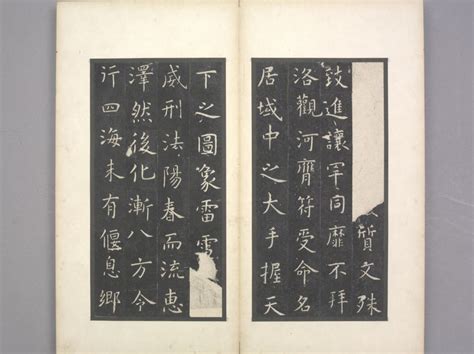 質文殊
致進讓罕同靡不拜
洛觀河膺符受命名
居域中之大手握天
下之圖象雷電
威刑法陽春而流惠
澤然後化漸八方令
行四海未有偃息鄉